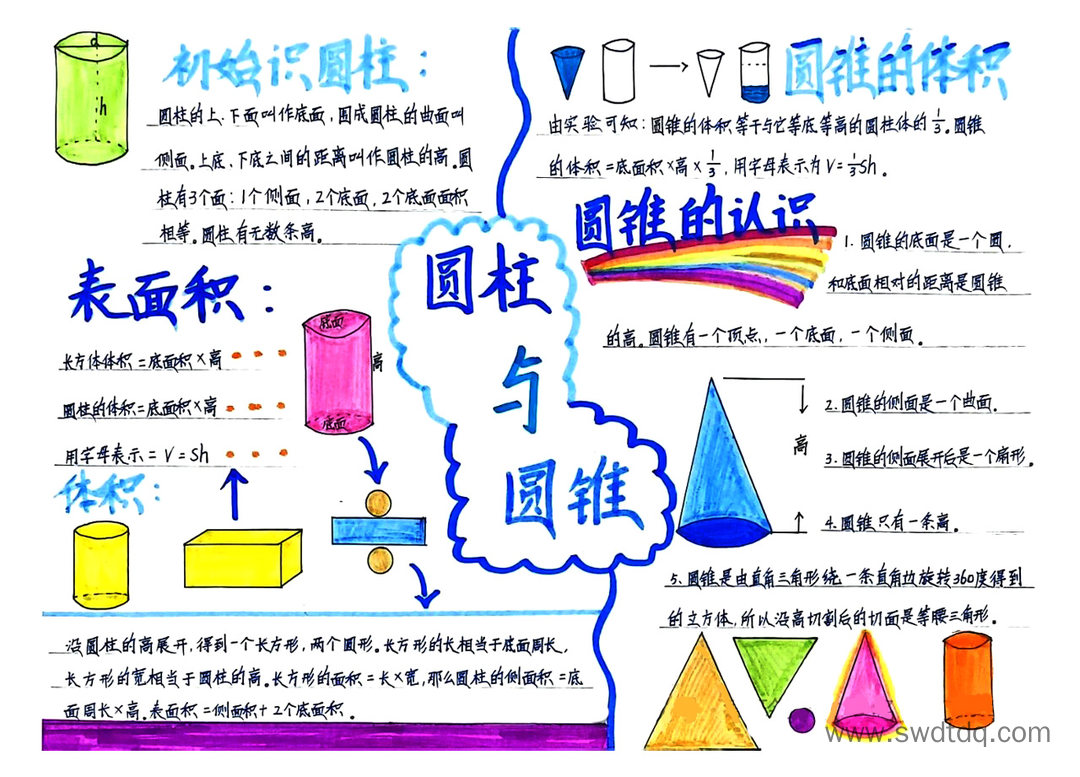 初始识圆柱：
圆柱的上、下面叫作底面，围成圆柱的曲面叫
侧面。上底、下底之间的距离叫作圆柱的高。圆
柱有3个面：1个侧面，2个底面，2个底面面积
相等。圆柱有无数条高。
d
h
表面积：
长方体体积=底面积×高
圆柱的体积=底面积×高
用字母表示=V=Sh
底面
高
底面
体积：
没圆柱的高展开，得到一个长方形，两个圆形。长方形的长相当于底面周长，
长方形的宽相当于圆柱的高。长方形的面积=长×宽，那么圆柱的侧面积=底
面周长×高。表面积=侧面积+2个底面积。
圆柱
与
圆锥
圆锥的体积
由实验可知：圆锥的体积等于与它等底等高的圆柱体的1/3。圆锥
的体积=底面积×高×1/3，用字母表示为V=1/3Sh。
圆锥的认识
1. 圆锥的底面是一个圆，
和底面相对的距离是圆锥
的高。圆锥有一个顶点，一个底面，一个侧面。
2. 圆锥的侧面是一个曲面。
高
3. 圆锥的侧面展开后是一个扇形。
4. 圆锥只有一条高。
5. 圆锥是由直角三角形绕一条直角边旋转360度得到
的立方体，所以沿高切割后的切面是等腰三角形。
www.swdtdq.com